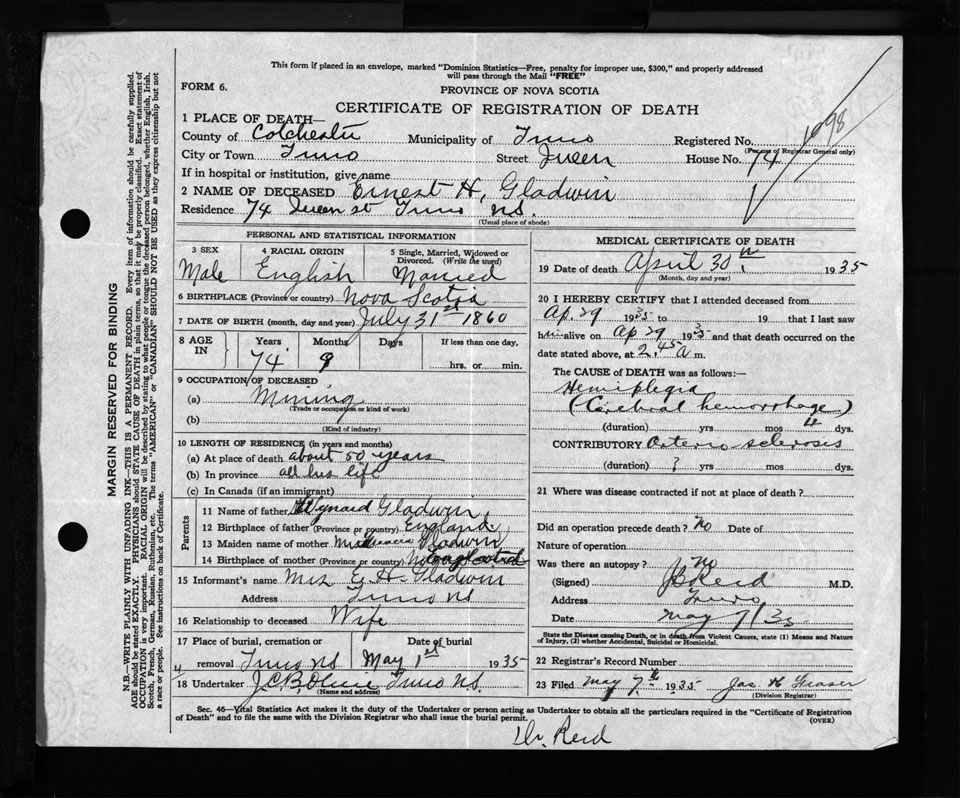 This form if placed in an envelope, marked "Dominion Statistics—Free, penalty for improper use, $300," and properly addressed
will pass through the Mail "FREE"
FORM 6.
PROVINCE OF NOVA SCOTIA
CERTIFICATE OF REGISTRATION OF DEATH
1098
1 PLACE OF DEATH—
County of Colchester Municipality of Truro Registered No.
(For use of Registrar General only)
City or Town Truro Street Queen House No. 74
If in hospital or institution, give name
2 NAME OF DECEASED Ernest H. Gladwin
Residence 74 Queen st Truro N.S.
(Usual place of abode)
PERSONAL AND STATISTICAL INFORMATION
3 SEX 4 RACIAL ORIGIN 5 Single, Married, Widowed or Divorced. (Write the word)
Male English Married
6 BIRTHPLACE (Province or country) Nova Scotia
7 DATE OF BIRTH (month, day and year) July 31st 1860
8 AGE IN Years Months Days If less than one day,
74 9 hrs. or min.
9 OCCUPATION OF DECEASED
(a) Mining
(Trade or occupation or kind of work)
(b)
(Kind of industry)
10 LENGTH OF RESIDENCE (in years and months)
(a) At place of death about 50 years
(b) In province all his life
(c) In Canada (if an immigrant)
Parents
11 Name of father Gladwin
12 Birthplace of father (Province or country) England
13 Maiden name of mother Gladwin
14 Birthplace of mother (Province or country)
15 Informant's name Mrs E. H. Gladwin
Address Truro NS
16 Relationship to deceased Wife
17 Place of burial, cremation or removal Truro NS Date of burial May 1st 1935
18 Undertaker Truro NS.
(Name and address)
MEDICAL CERTIFICATE OF DEATH
19 Date of death April 30th 1935
(Month, day and year)
20 I HEREBY CERTIFY that I attended deceased from
Ap 29 1935 to 19 that I last saw
him alive on Ap 29 1935 and that death occurred on the
date stated above, at 2.45 a m.
The CAUSE of DEATH was as follows:—
Hemiplegia
(Cerebral hemorrhage)
(duration) yrs mos 4 dys.
CONTRIBUTORY Arterio sclerosis
(duration) ? yrs mos dys.
21 Where was disease contracted if not at place of death?
Did an operation precede death? No Date of
Nature of operation
Was there an autopsy? No
(Signed) Reid M.D.
Address Truro
Date May 7/35
State the Disease causing Death, or in death from Violent Causes, state (1) Means and Nature
of Injury, (2) whether Accidental, Suicidal or Homicidal.
22 Registrar's Record Number
23 Filed May 7th 1935 Jas. H Fraser
(Division Registrar)
Sec. 46—Vital Statistics Act makes it the duty of the Undertaker or person acting as Undertaker to obtain all the particulars required in the "Certificate of Registration
of Death" and to file the same with the Division Registrar who shall issue the burial permit.
(OVER)
Dr. Reid
MARGIN RESERVED FOR BINDING
N.B.—WRITE PLAINLY WITH UNFADING INK—THIS IS A PERMANENT RECORD. Every item of information should be carefully supplied.
AGE should be stated EXACTLY. PHYSICIANS should STATE CAUSE OF DEATH in plain terms, so that it may be properly classified. Exact statement of
OCCUPATION is very important. RACIAL ORIGIN will be described by stating to what people or tongue the deceased person belonged, whether English, Irish,
Scotch, French, German, Russian, Ruthenian, etc. The terms "AMERICAN" or "CANADIAN" SHOULD NOT BE USED as they express citizenship but not
a race or people. See instructions on back of Certificate.